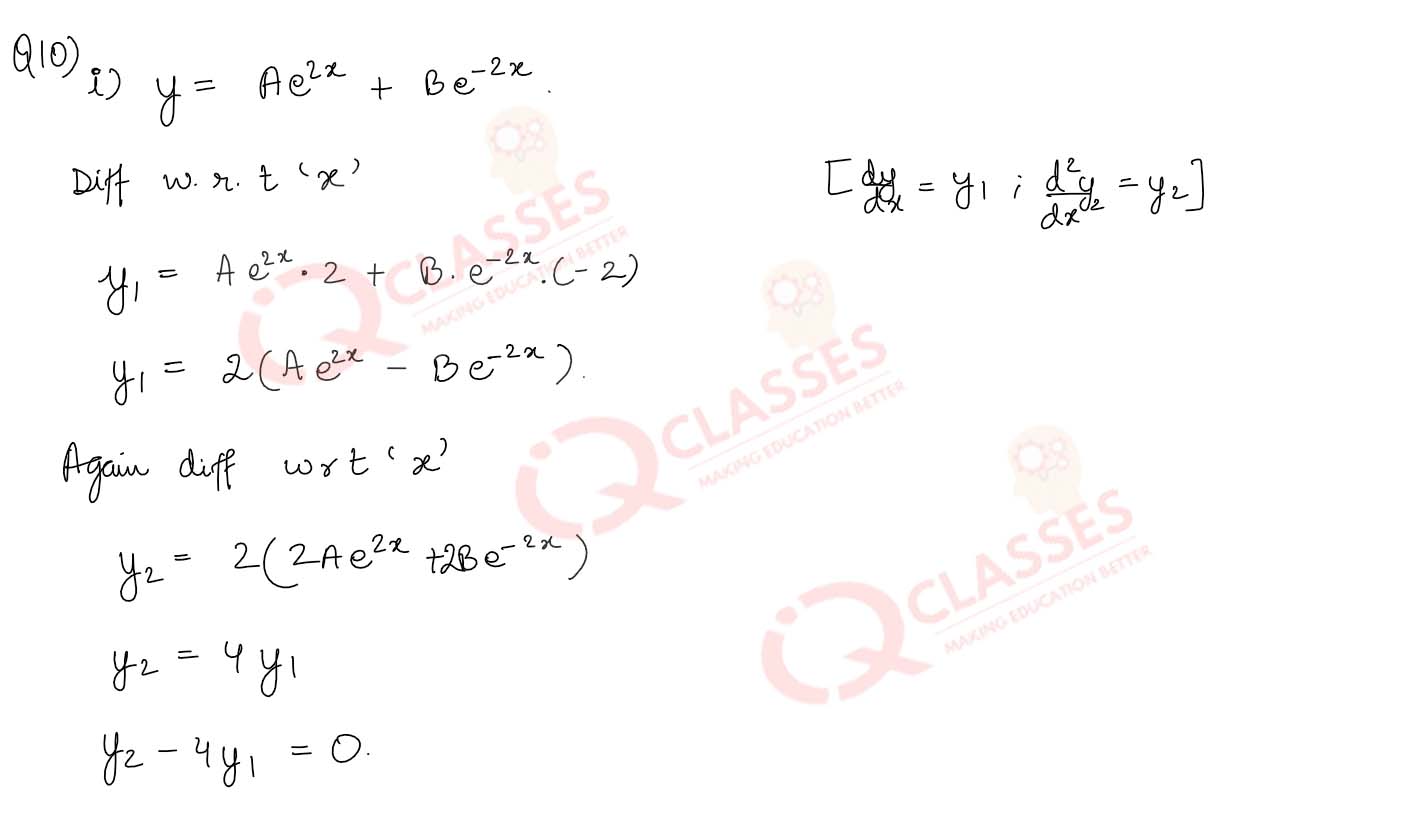 Q10) i) y = Ae^{2x} + Be^{-2x}.
Diff w.r.t 'x' [dy/dx = y_1 ; d^2y/dx^2 = y_2]
y_1 = Ae^{2x} · 2 + B. e^{-2x}.(-2)
y_1 = 2(Ae^{2x} - Be^{-2x}).
Again diff wrt 'x'
y_2 = 2(2Ae^{2x} +2Be^{-2x})
y_2 = 4y_1
y_2 - 4y_1 = 0.
iQ CLASSES
MAKING EDUCATION BETTER
iQ CLASSES
MAKING EDUCATION BETTER
iQ CLASSES
MAKING EDUCATION BETTER